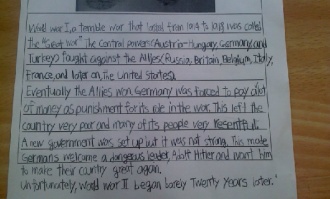 World war I, a terrible war that lasted from 1914 to 1918 was called
the "Great War". The Central powers (Austria-Hungary, Germany, and
Turkey) fought against the Allies (Russia, Britain, Belgium, Italy,
France, and later on, The United States).
Eventually the Allies won Germany was forced to pay alot
of money as punishment for its role in the war. This left the
country very poor and many of its people very resentful.
A new government was set up but it was not strong. This made
Germans welcome a dangerous leader, Adolf Hitler and want him
to make their country great again.
Unfortunately, World war II began barely Twenty Years later."